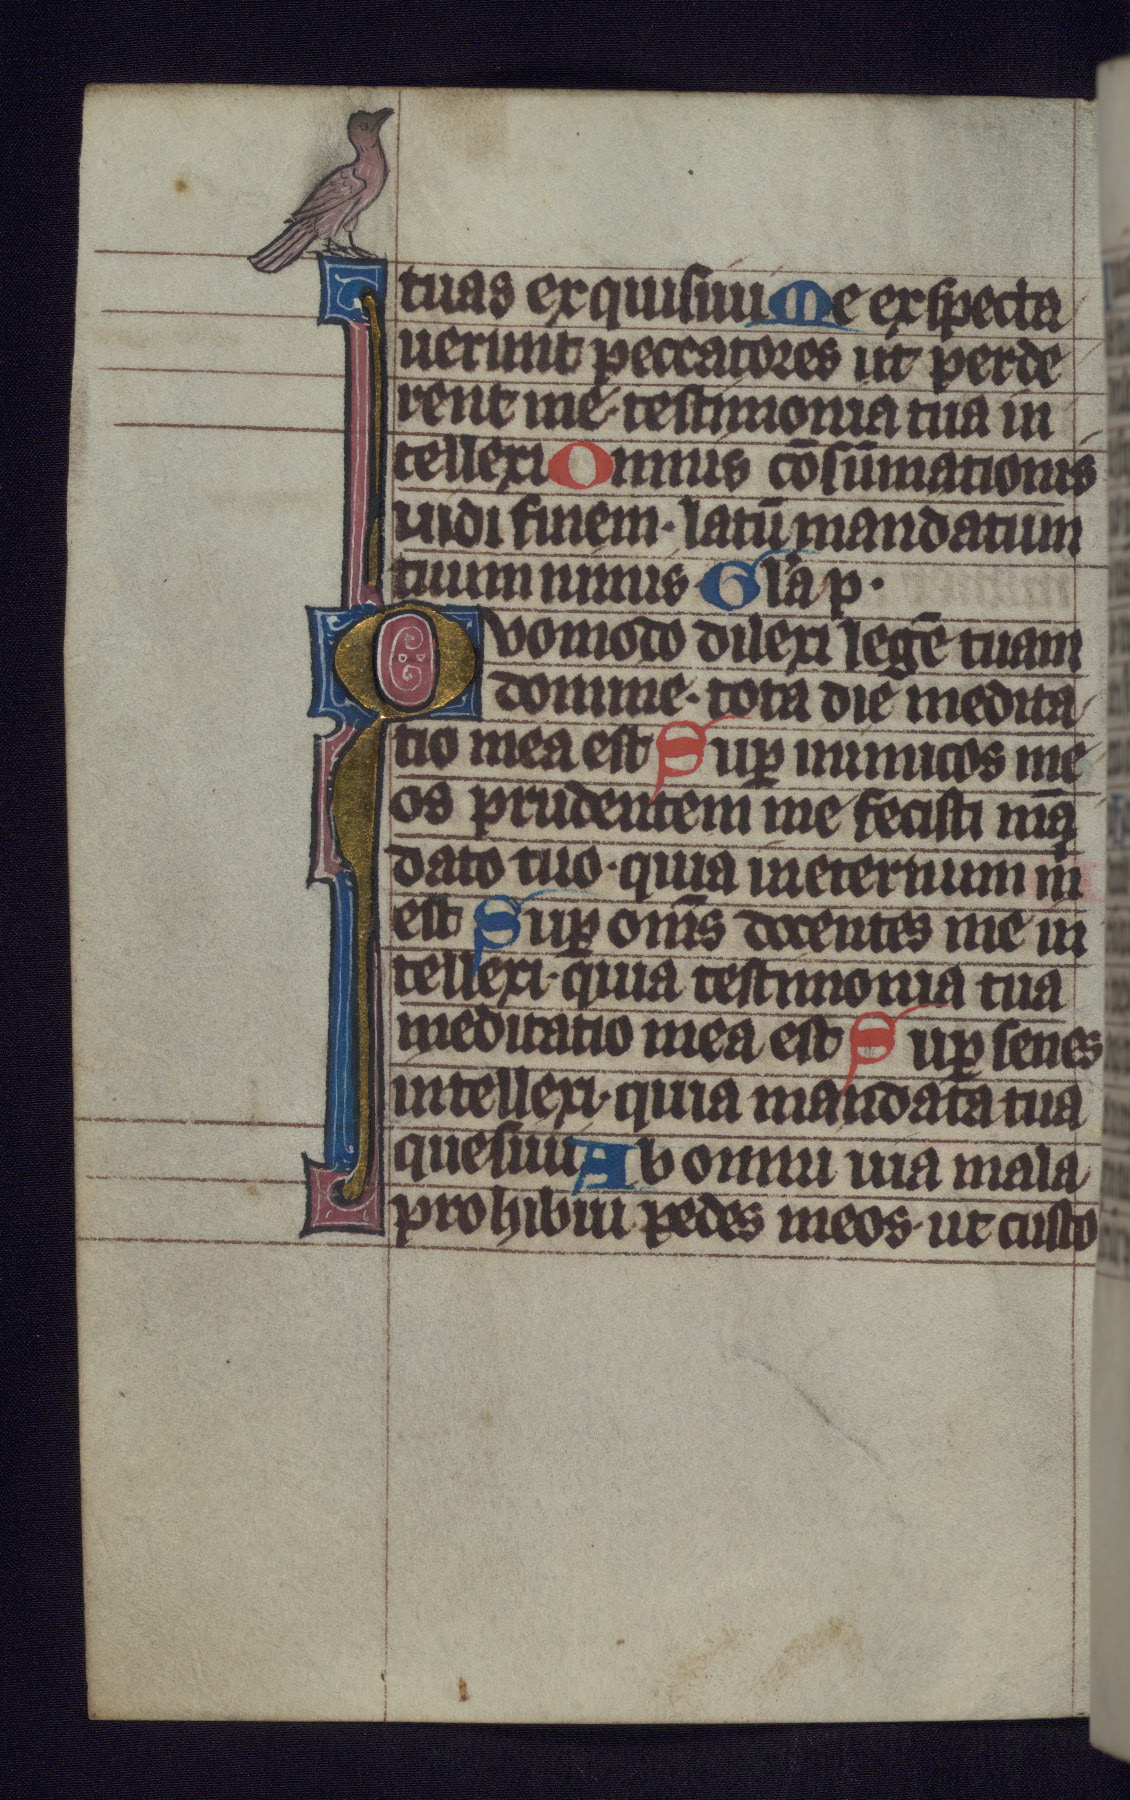 tuas exquisiui Me exspecta
uerunt peccatores ut perde
rent me· testimonia tua in
tellexi Omnis cōsūmationis
uidi finem· latū mandatum
tuum nimis Gl̄a p·
Quomodo dilexi legē tuam
domine· tota die medita
tio mea est Suꝑ inimicos me
os prudentem me fecisti mā
dato tuo· quia in eternum m̄
est Suꝑ om̄s docentes me in
tellexi· quia testimonia tua
meditatio mea est Suꝑ senes
intellexi· quia mandata tua
quesiui Ab omni uia mala
prohibui pedes meos· ut custo